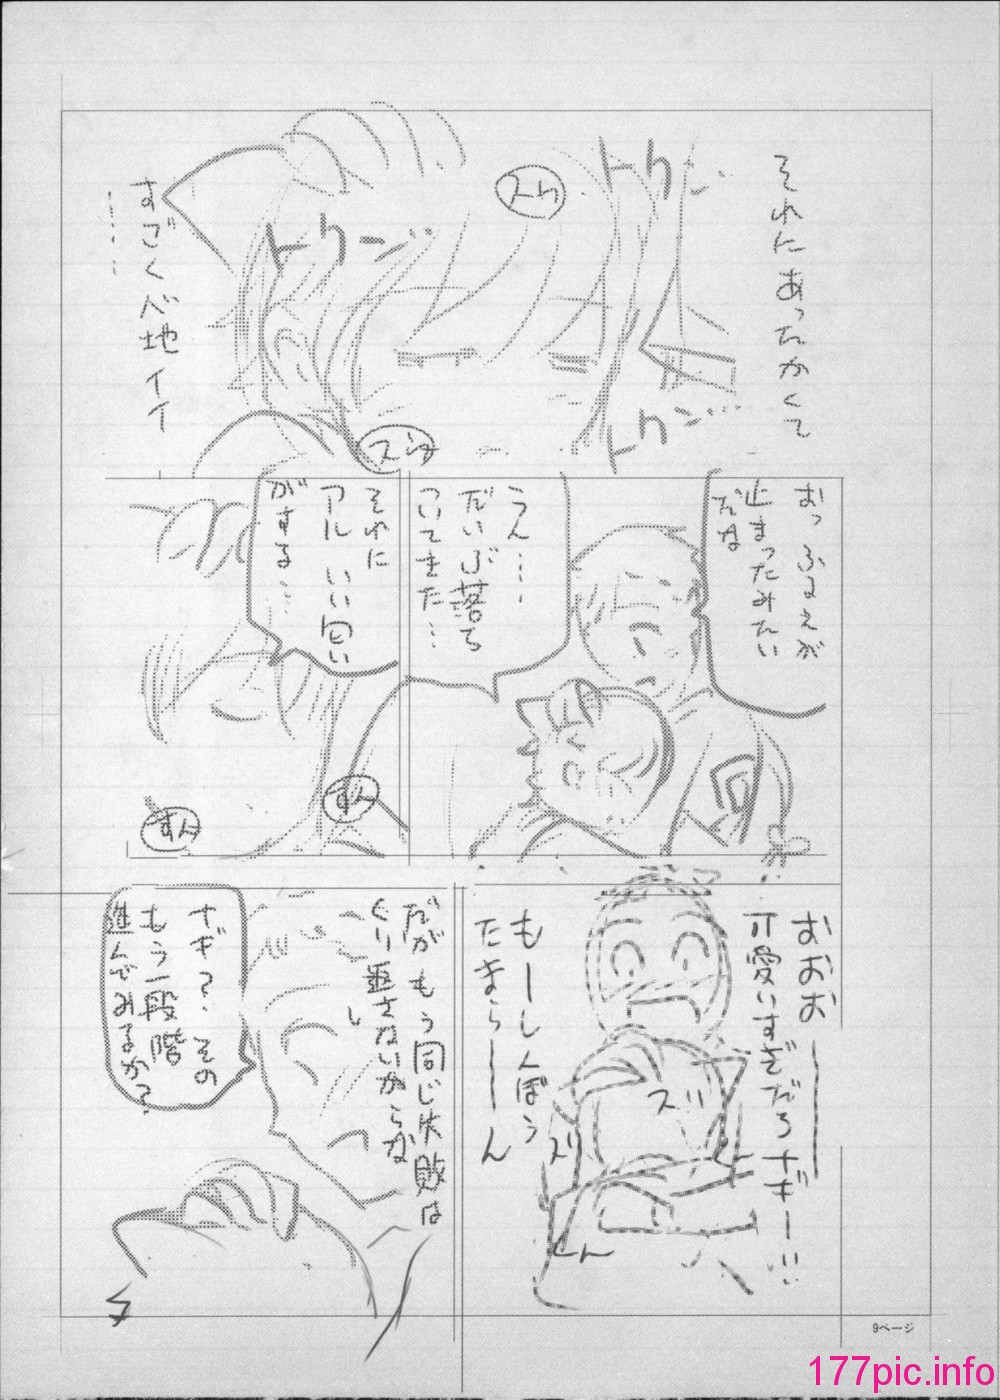 それにあったかくて
トクン…
スゥ
トクン…
トクン…
スゥ
すごく心地イイ
……
おっ ふるえが
止まったみたい
だな
うん……
だいぶ落ち
ついてきた…
それに
アル いい匂い
がする……
すん
すん
おおおーー
可愛いすぎだろナギー…
もーしんぼう
たまらーーん
スリ
スリ
くん
だが もう同じ失敗は
くり返さないからな
ナギ? その
もう一段階
進んでみるか?
9ページ
177pic.info